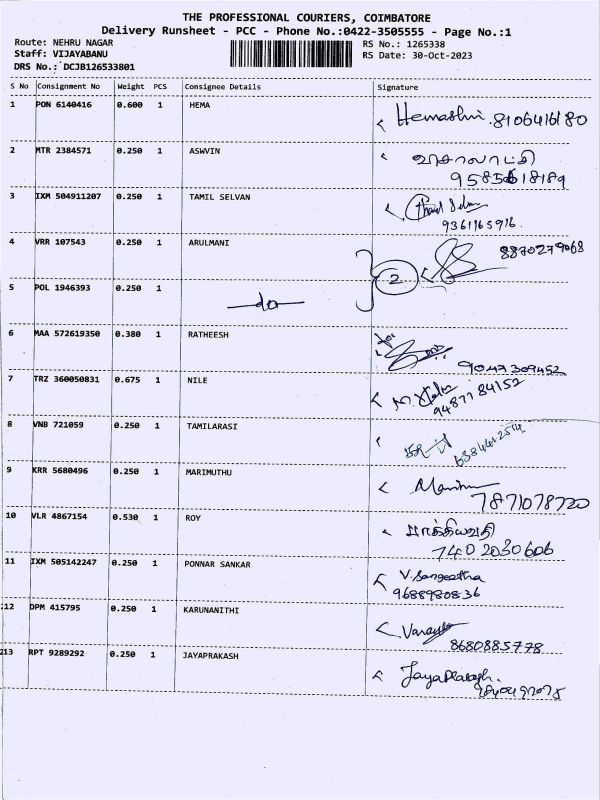 THE PROFESSIONAL COURIERS, COIMBATORE
Delivery Runsheet - PCC - Phone No.:0422-3505555 - Page No.:1
Route: NEHRU NAGAR RS No.: 1265338
Staff: VIJAYABANU RS Date: 30-Oct-2023
DRS No.: DCJB126533801
S No Consignment No Weight PCS Consignee Details Signature
1 PON 6140416 0.600 1 HEMA Hemashri. 8106416180
2 MTR 2384571 0.250 1 ASWVIN விசாலாட்சி
9585618189
3 IXM 504911207 0.250 1 TAMIL SELVAN
9361165916.
4 VRR 107543 0.250 1 ARULMANI 8870279068
5 POL 1946393 0.250 1 do 2
6 MAA 572619350 0.380 1 RATHEESH for
9047309452
7 TRZ 360050831 0.675 1 NILE
9487784152
8 VNB 721059 0.250 1 TAMILARASI
9 KRR 5680496 0.250 1 MARIMUTHU
7871078720
10 VLR 4867154 0.530 1 ROY
7402030606
11 IXM 505142247 0.250 1 PONNAR SANKAR V. Sangeetha
9688980836
12 DPM 415795 0.250 1 KARUNANITHI
8680885778
13 RPT 9289292 0.250 1 JAYAPRAKASH Jayaprakash.